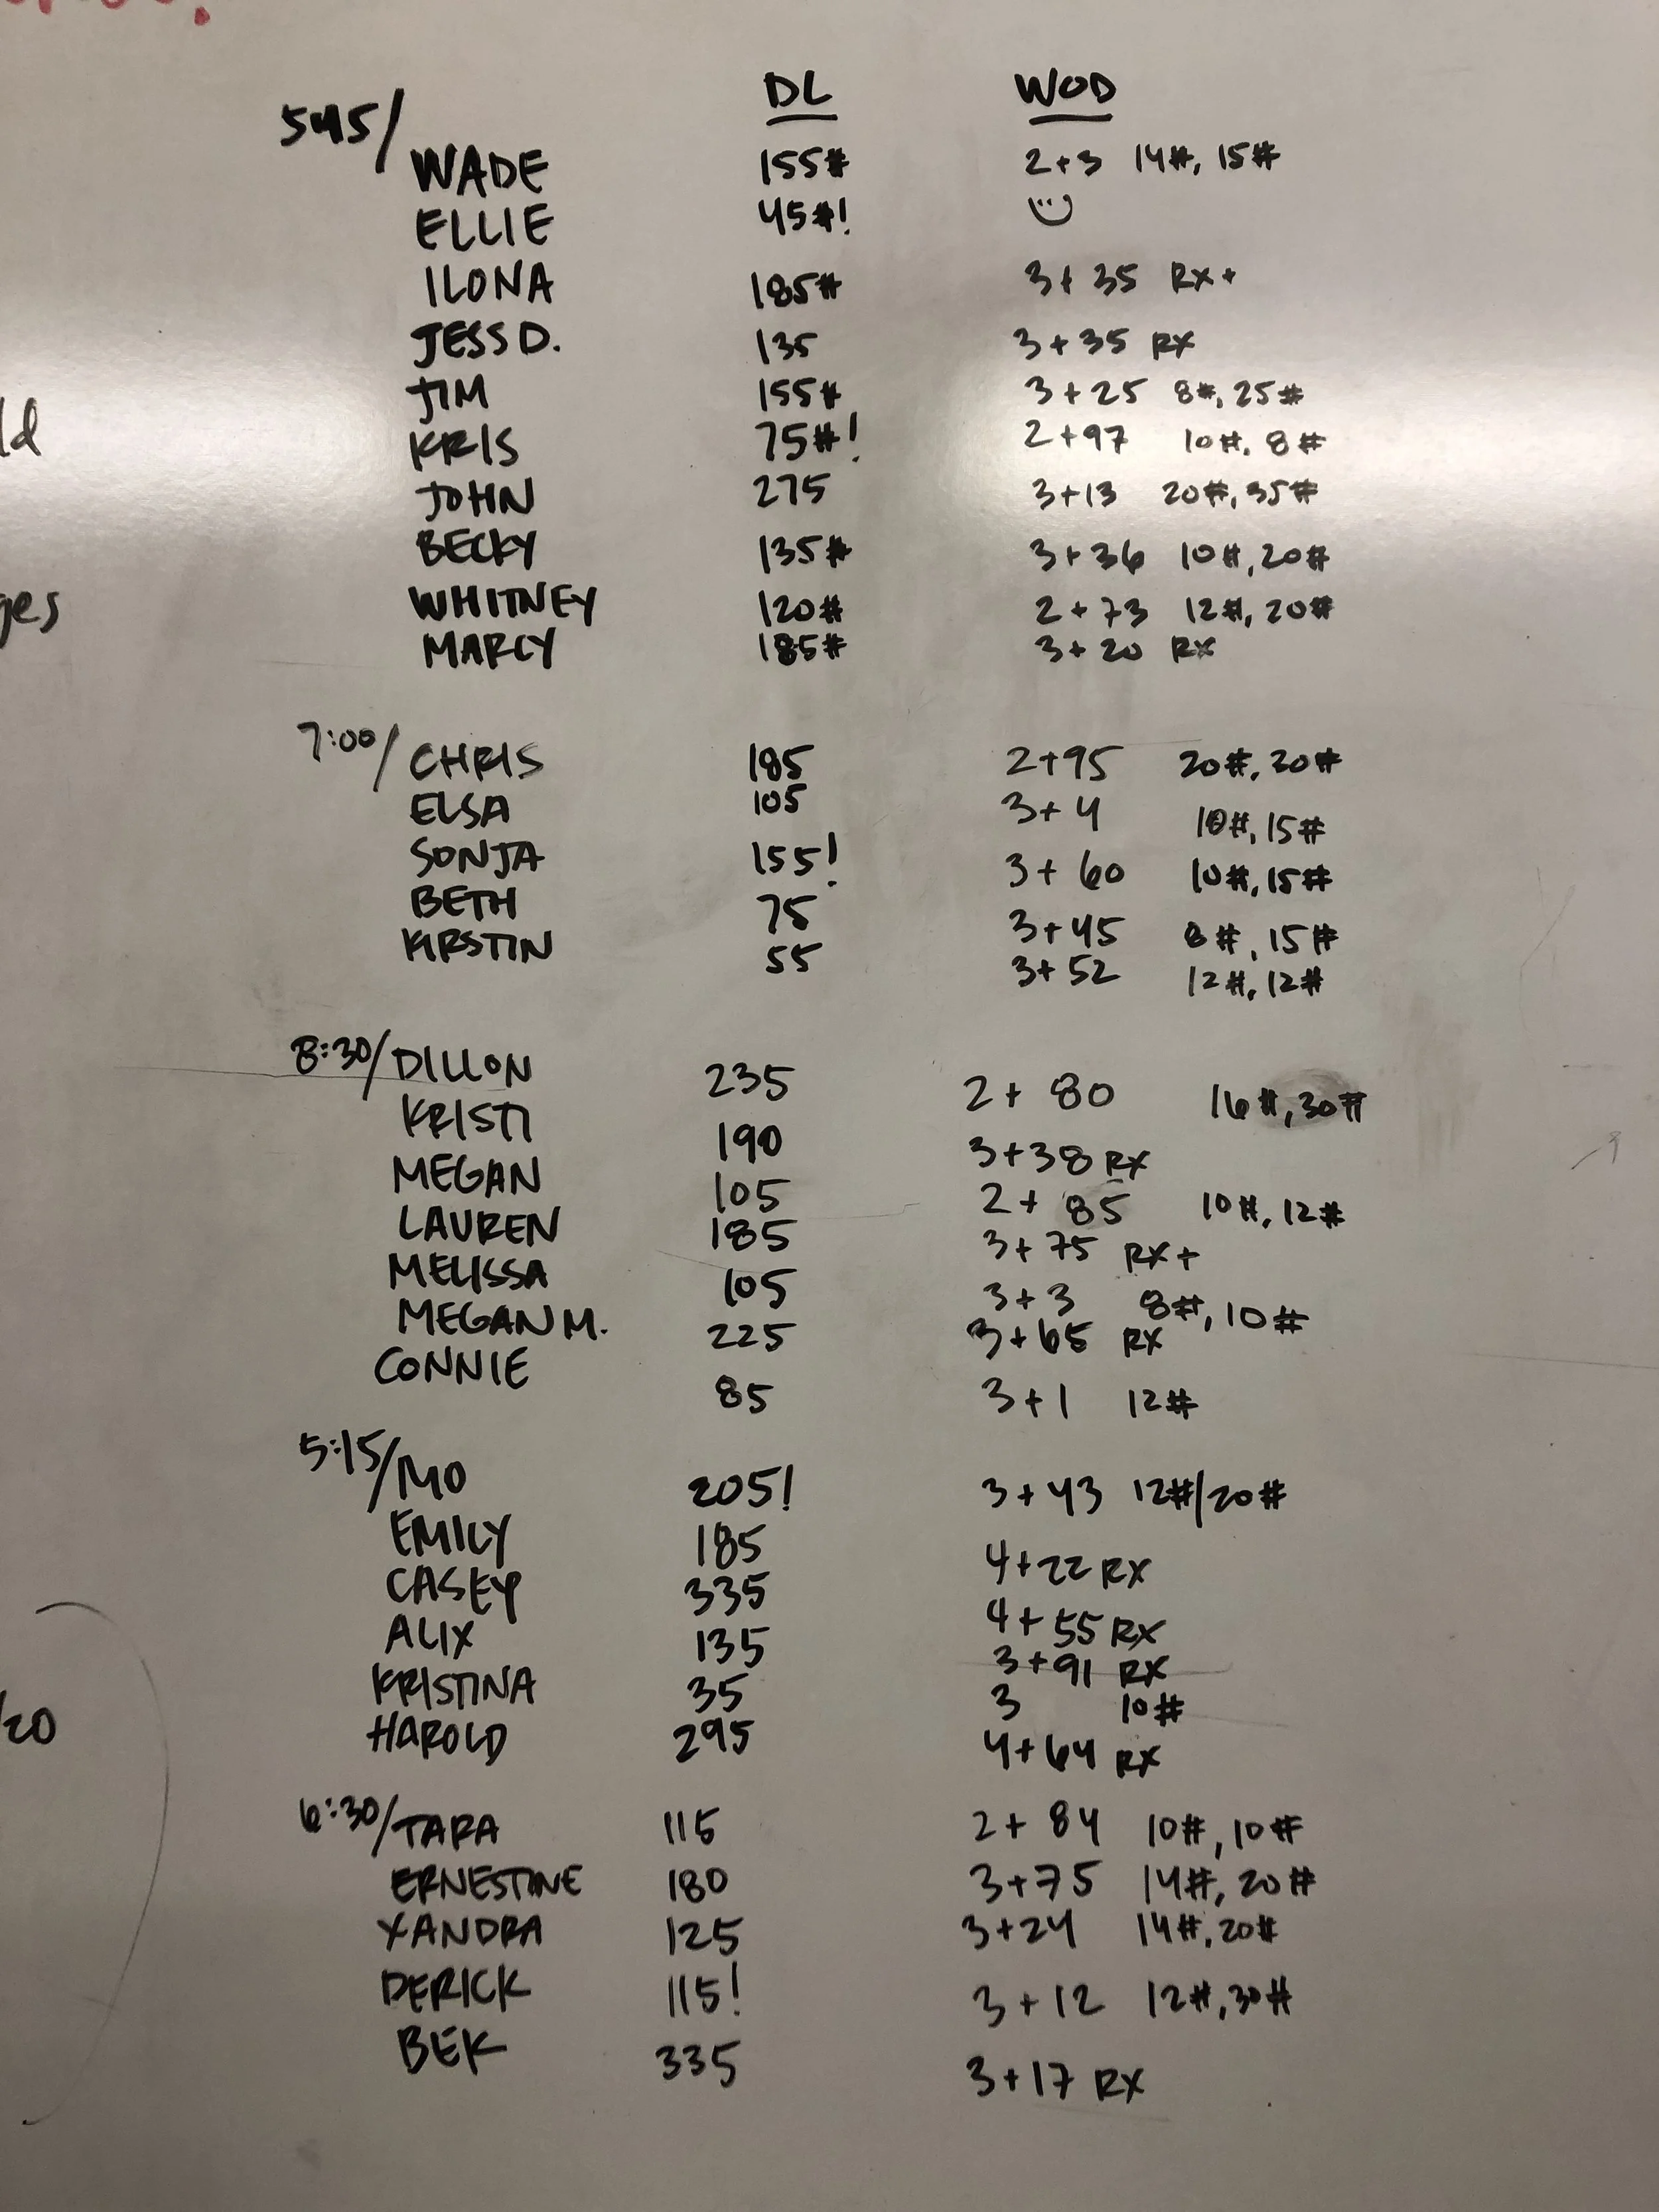 DL WOD
545/
WADE 155# 2+3 14#, 15#
ELLIE 45#!
ILONA 185# 3+35 RX+
JESS D. 135 3+35 RX
JIM 155# 3+25 8#, 25#
KRIS 75#! 2+97 10#, 8#
JOHN 275 3+13 20#, 35#
BECKY 135# 3+36 10#, 20#
WHITNEY 120# 2+73 12#, 20#
MARCY 185# 3+20 RX
7:00/ CHRIS 185 2+95 20#, 30#
ELSA 105 3+4 10#, 15#
SONJA 155! 3+60 10#, 15#
BETH 75 3+45 8#, 15#
KIRSTIN 55 3+52 12#, 12#
8:30/ DILLON 235 2+80 16#, 30#
KRISTI 190 3+38 RX
MEGAN 105 2+85 10#, 12#
LAUREN 185 3+75 RX+
MELISSA 105 3+3 8#, 10#
MEGAN M. 225 3+65 RX
CONNIE 85 3+1 12#
5:15/ MO 205! 3+43 12#/20#
EMILY 185 4+22 RX
CASEY 335 4+55 RX
ALIX 135 3+91 RX
KRISTINA 35 3 10#
HAROLD 295 4+64 RX
6:30/ TARA 115 2+84 10#, 10#
ERNESTINE 180 3+75 14#, 20#
XANDRA 125 3+24 14#, 20#
DERICK 115! 3+12 12#, 30#
BEK 335 3+17 RX
ld
ges
/20